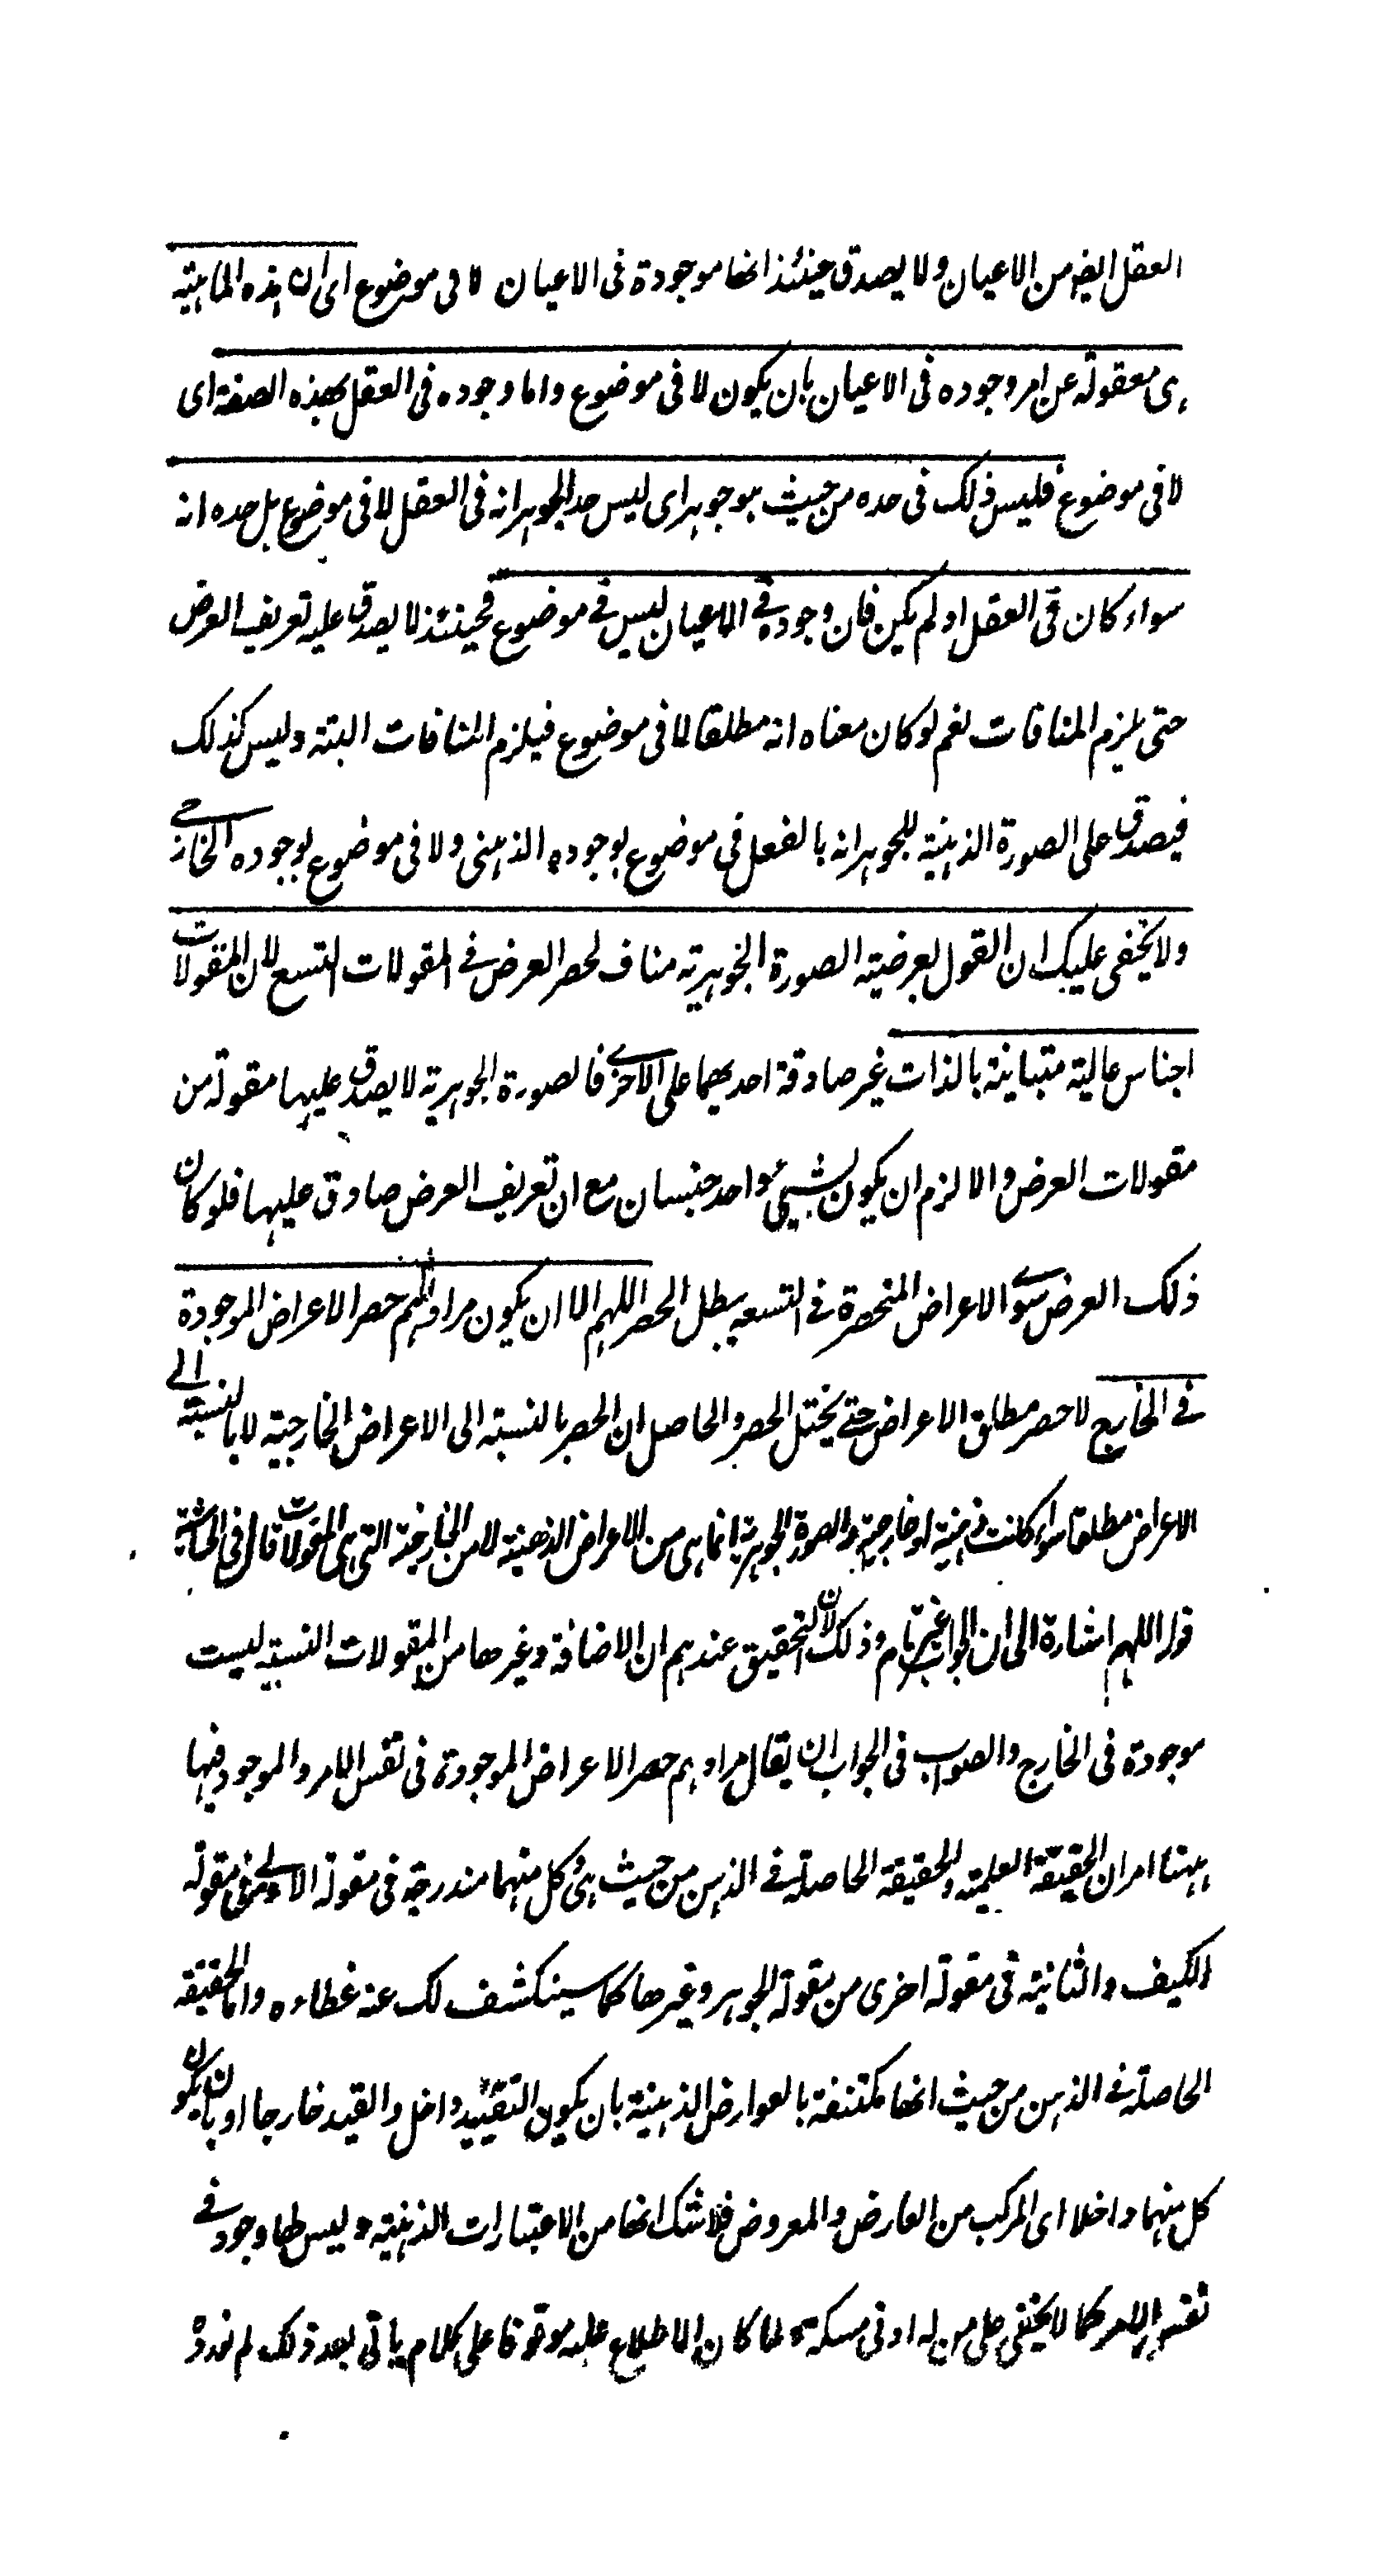 العقل ايضه من الاعيان ولا يصدق حينئذ انها موجودة فى الاعيان لا فى موضوع اى ان هذه الماهية
هى معقولة عن امر وجوده فى الاعيان بان يكون لا فى موضوع واما وجوده فى العقل بهذه الصفة اى
لا فى موضوع فليس ذلك فى حده من حيث هو جوهر اى ليس حد الجوهر انه فى العقل لا فى موضوع بل حده انه
سواء كان فى العقل او لم يكن فان وجوده فى الاعيان ليس فى موضوع فحينئذ لا يصدق عليه تعريف العرض
حتى يلزم المنافات نعم لو كان معناه انه مطلقا لا فى موضوع فيلزم المنافات البتة وليس كذلك
فيصدق على الصورة الذهنية للجوهر انه بالفعل فى موضوع بوجوده الذهنى ولا فى موضوع بوجوده الخارجے
ولا يخفى عليك ان القول بعرضية الصورة الجوهرية مناف لحصر العرض فے المقولات التسع لان المقولات
اجناس عالية متباينة بالذات غير صادقة احديهما على الاخرے فالصورة الجوهرية لا يصدق عليها مقولة من
مقولات العرض والا لزم ان يكون لشيئ واحد جنسان مع ان تعريف العرض صادق عليها فلو كان
ذلك العرض سوے الاعراض المنحصرة فے التسعة يبطل الحصر اللهم الا ان يكون مرادهم حصر الاعراض الموجودة
فے الخارج لا حصر مطلق الاعراض حتے يختل الحصر والحاصل ان الحصر بالنسبة الى الاعراض الخارجية لا بالنسبة الے
الاعراض مطلقا سواء كانت ذهنية او خارجية والصورة الجوهرية انما هى من الاعراض الذهنية لا من الخارجية التى هى المقولات قال فى الحاشية
قوله اللهم اشارة الى ان الجواب غير تام وذلك لان التحقيق عندهم ان الاضافة وغيرها من المقولات النسبية ليست
موجودة فى الخارج والصواب فى الجواب ان يقال مرادهم حصر الاعراض الموجودة فى نفس الامر والموجود فيها
ههنا امران الحقيقة العلمية والحقيقة الحاصلة فے الذهن من حيث هى وكل منهما مندرجة فى مقولة الاولے فى مقولة
الكيف والثانية فى مقولة اخرى من مقولة الجوهر وغيرها كما سينكشف لك عنه غطاءه واما الحقيقة
الحاصلة فے الذهن من حيث انها مكتنفة بالعوارض الذهنية بان يكون التقييد داخل والقيد خارجا او بان يكون
كل منهما داخلا اى المركب من العارض والمعروض فلا شك انها من الاعتبارات الذهنية وليس لها وجود فے
نفس الامر كما لا يخفى على من له ادنى مسكة لما كان الاطلاع عليه موقوفا على كلام ياتى بعد ذلك لم